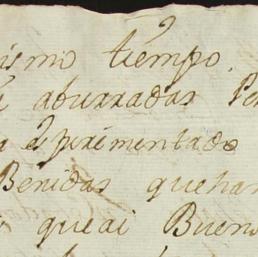 ismo tiempo.
aburradas Per
a esperimentado
Benidas quehan
queai Bueno